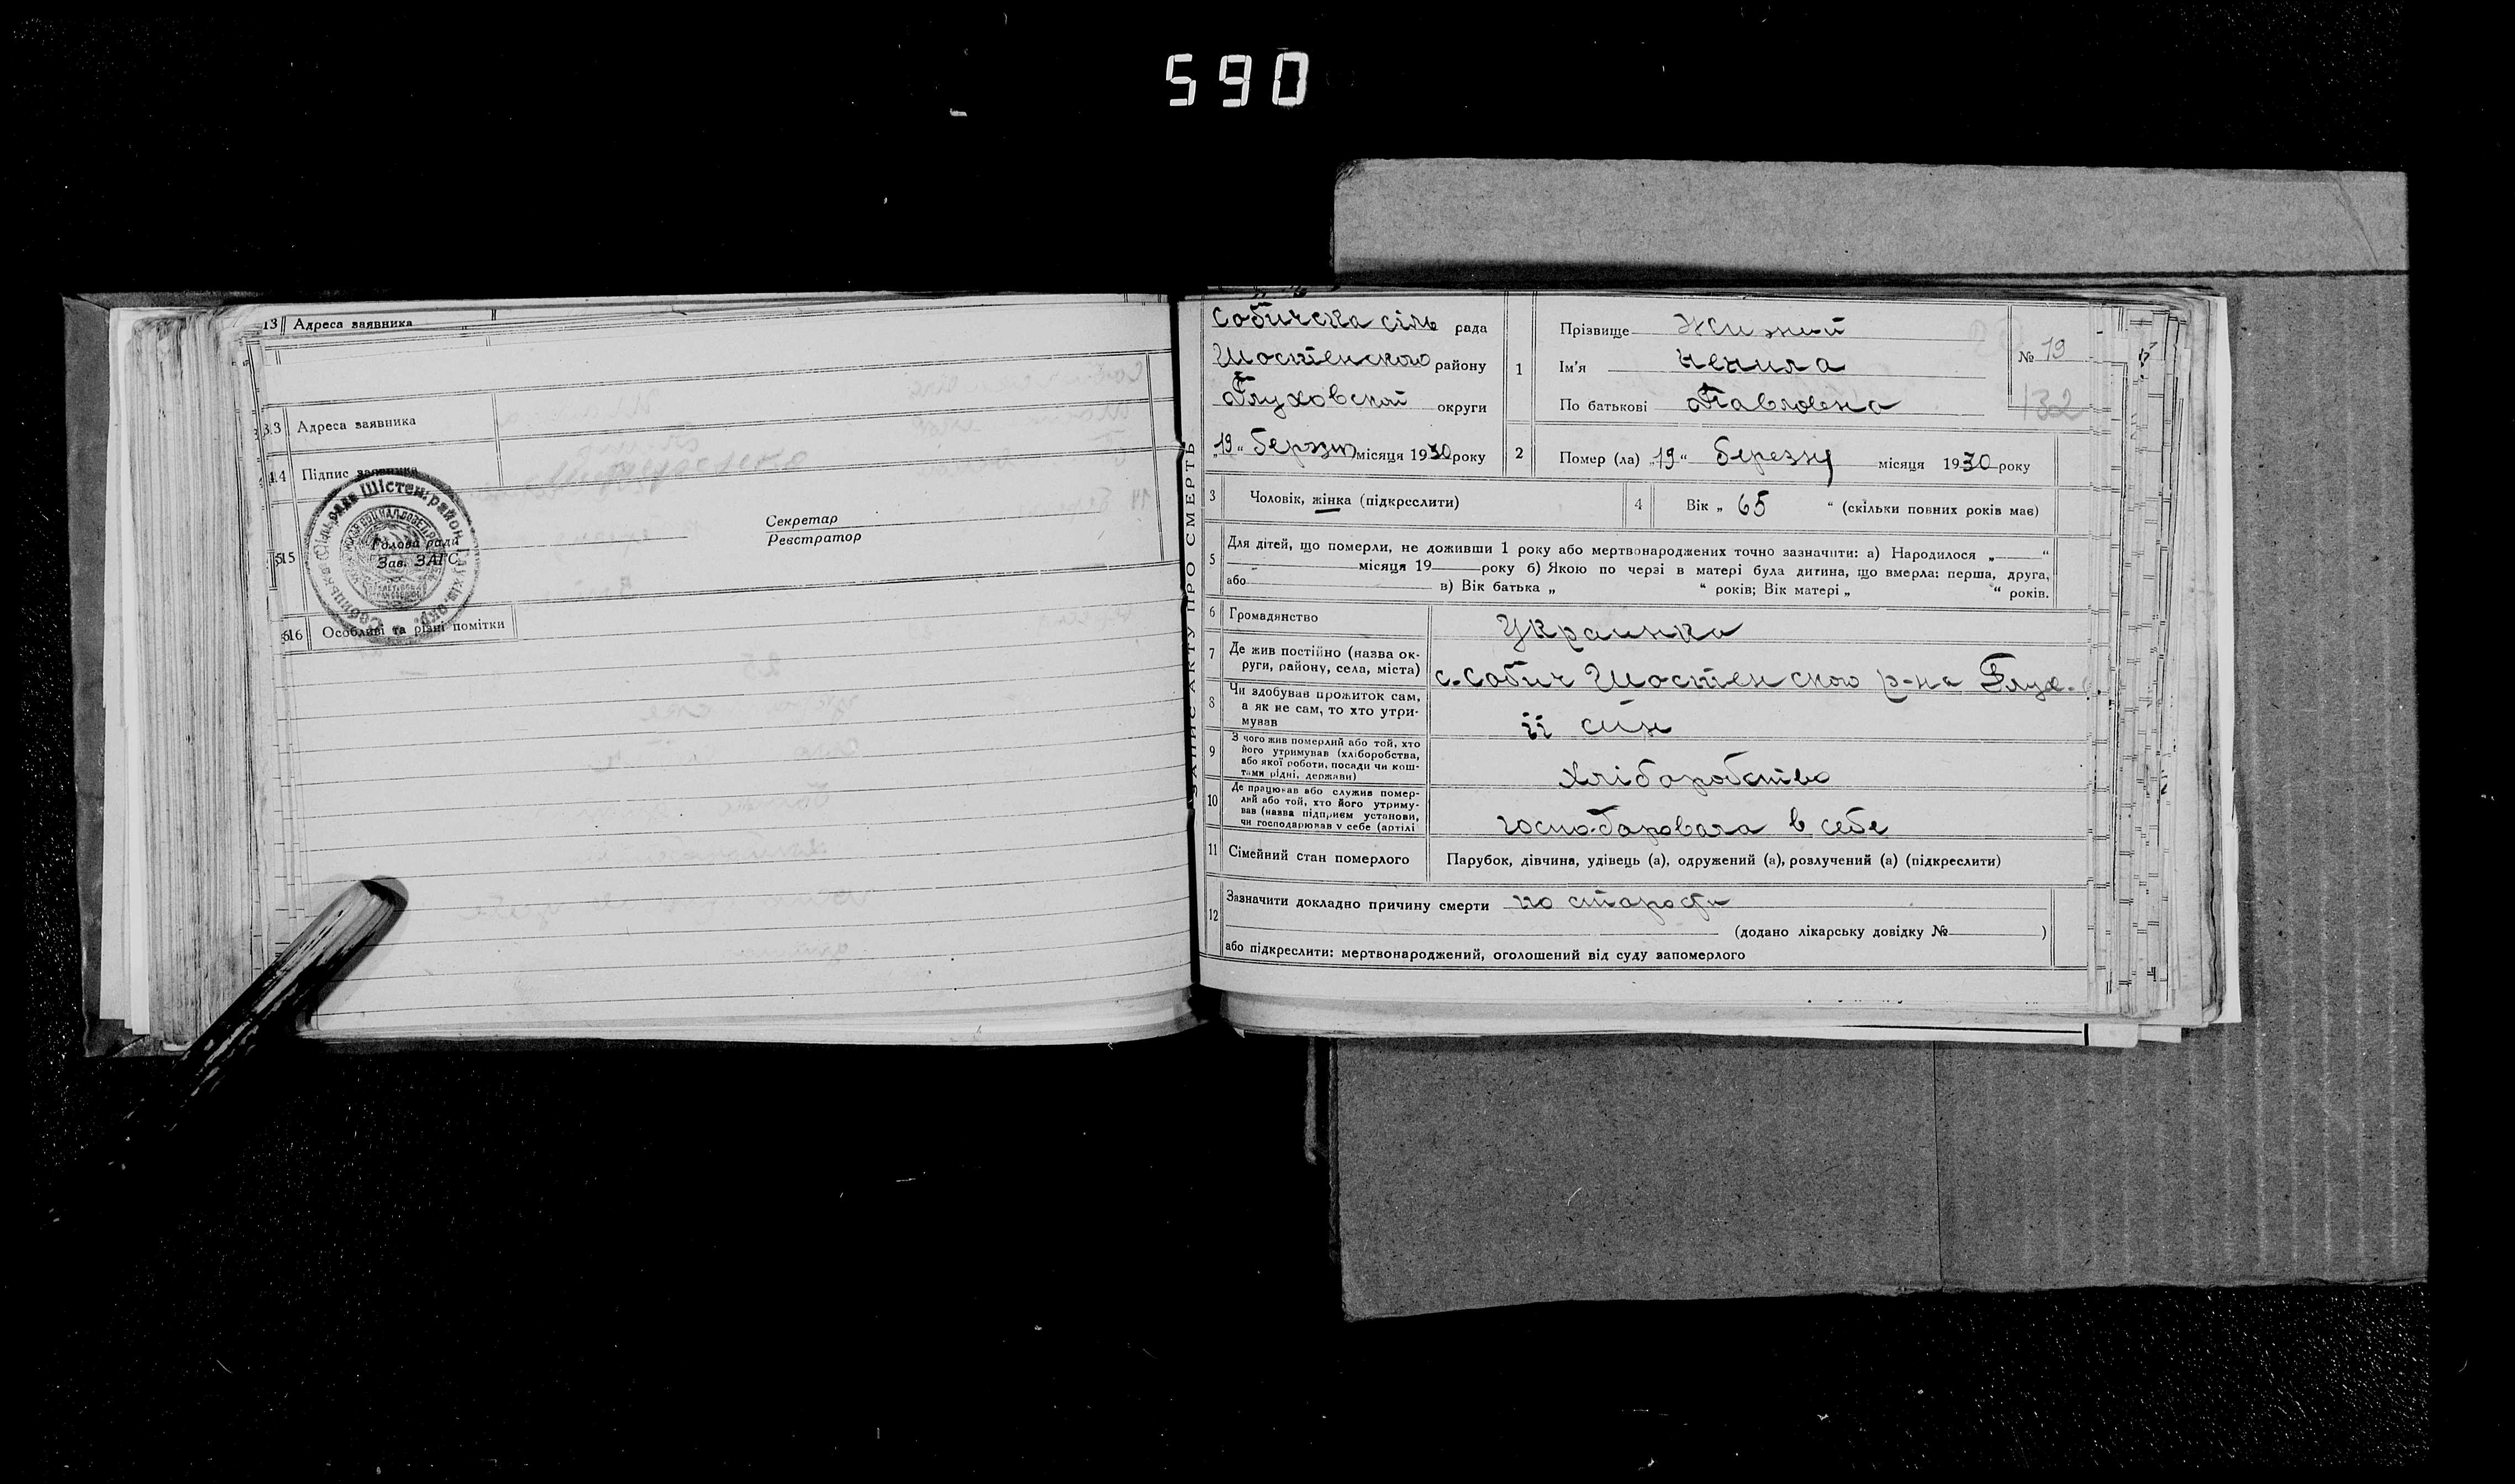 590
13 Адреса заявника
13 Адреса заявника
14 Підпис заявника
Секретар
Реєстратор
15
Голова ради
Зав. ЗАГС
16 Особливі та різні помітки
ЗАПИС АКТУ ПРО СМЕРТЬ
Собичска сіль рада
Шостенского району
Глуховской округи
"19" березня місяця 1930 року
1
Прізвище
Ім'я Ненила
По батькові Павловна
№ 19
132
2 Помер (ла) "19" березня місяця 1930 року
3 Чоловік, жінка (підкреслити)
4 Вік "65" (скільки повних років має)
5 Для дітей, що померли, не доживши 1 року або мертвонароджених точно зазначити: а) Народилося „ “
місяця 19 року б) Якою по черзі в матері була дитина, що вмерла: перша, друга,
або в) Вік батька „ “ років; Вік матері „ “ років.
6 Громадянство Украинка
7 Де жив постійно (назва ок-
руги, району, села, міста) с. Собич Шостенского р-на Глух.
8 Чи здобував прожиток сам,
а як не сам, то хто утри-
мував її син
9 З чого жив померлий або той, хто
його утримував (хліборобства,
або якої роботи, посади чи кош-
тами рідні, держави) хліборобство
10 Де працював або служив помер-
лий або той, хто його утриму-
вав (назва підприєм установи,
чи господарював у себе (артілі господаровала в себе
11 Сімейний стан померлого Парубок, дівчина, удівець (а), одружений (а), розлучений (а) (підкреслити)
12 Зазначити докладно причину смерти по старости
(додано лікарську довідку № )
або підкреслити: мертвонароджений, оголошений від суду запомерлого